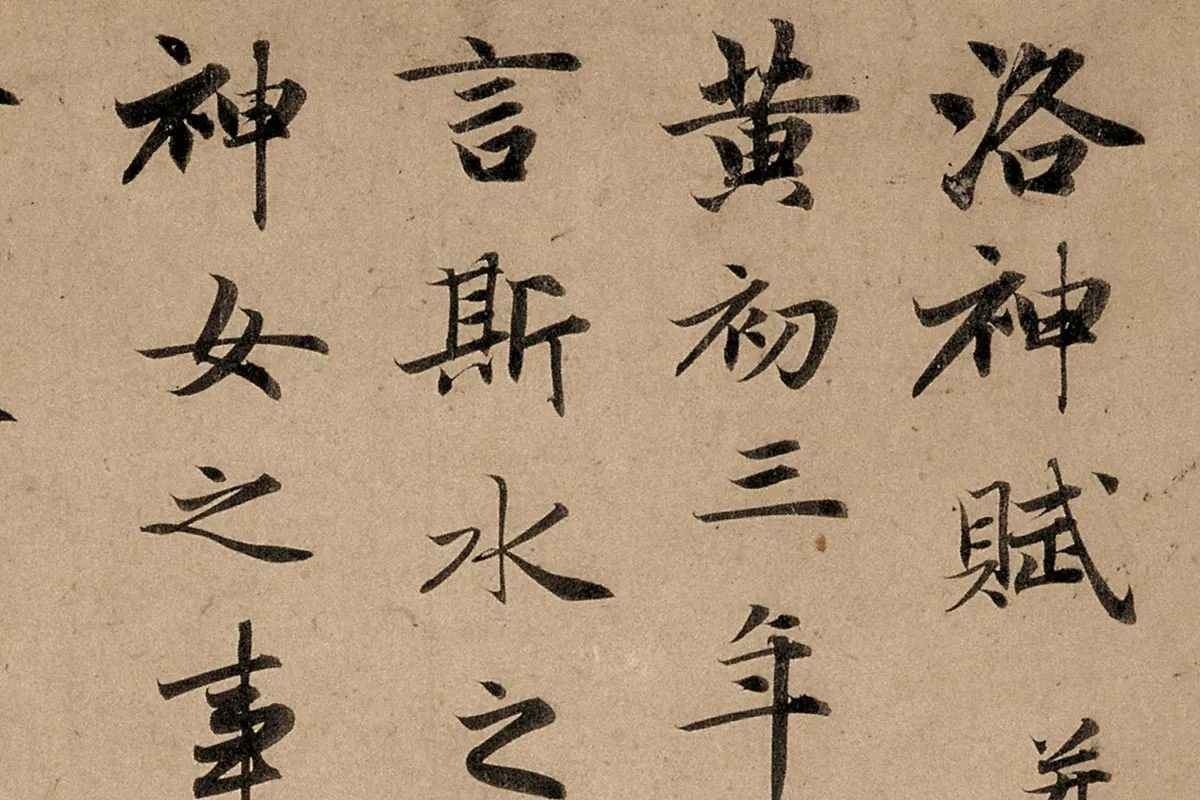 洛神賦並
黄初三年
言斯水之
神女之事